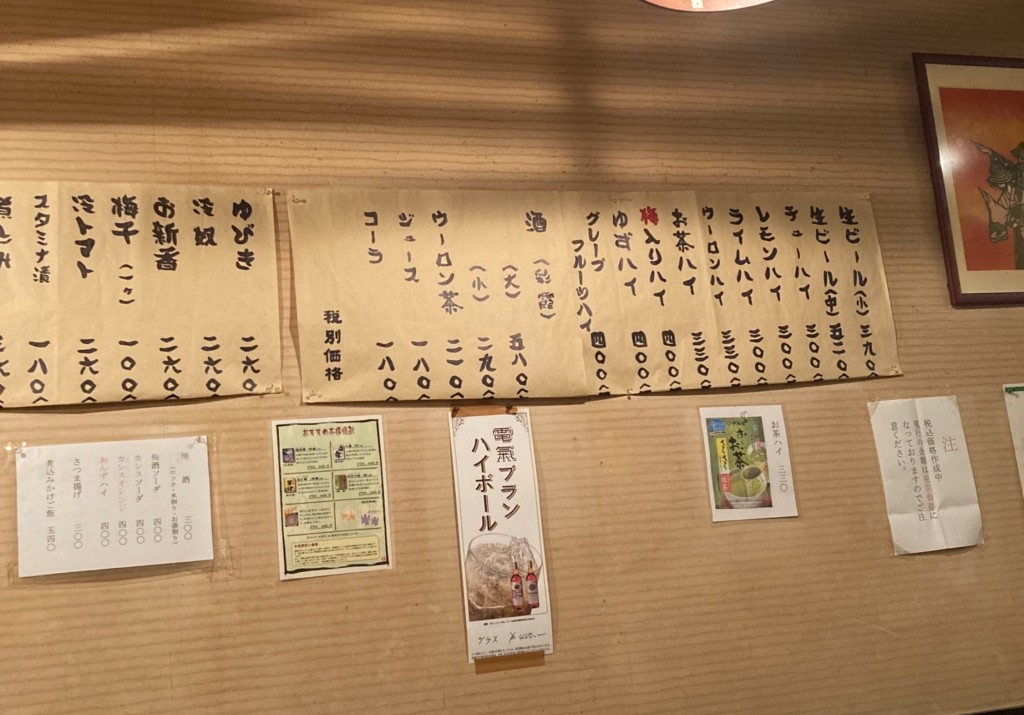 生ビール(小) 三九〇
生ビール(中) 五二〇
チューハイ 三〇〇
レモンハイ 三〇〇
ライムハイ 三三〇
ウーロンハイ 三三〇
お茶ハイ 四〇〇
梅入りハイ 四〇〇
ゆずハイ 四〇〇
グレープフルーツハイ 四〇〇
酒(彩霞)
(大) 五八〇
(小) 二九〇
ウーロン茶 二一〇
ジュース 一八〇
コーラ 一八〇
税別価格
ゆびき 二六〇
冷奴 二六〇
お新香 二六〇
梅干(一ヶ) 一〇〇
冷トマト 二六〇
スタミナ漬 一八〇
注
税込価格作成中
現行の金額は税別価格に
なっておりますのでご注
意ください。
お茶ハイ 三三〇
お〜いお茶
電氣ブラン
ハイボール
グラス ¥400.-
梅酒 三〇〇
(ロック・水割り・お湯割り)
梅酒ソーダ 四〇〇
カシスソーダ 四〇〇
カシスオレンジ 四〇〇
あんずハイ 四〇〇
さつま揚げ 三〇〇
煮込みかけご飯 五四〇